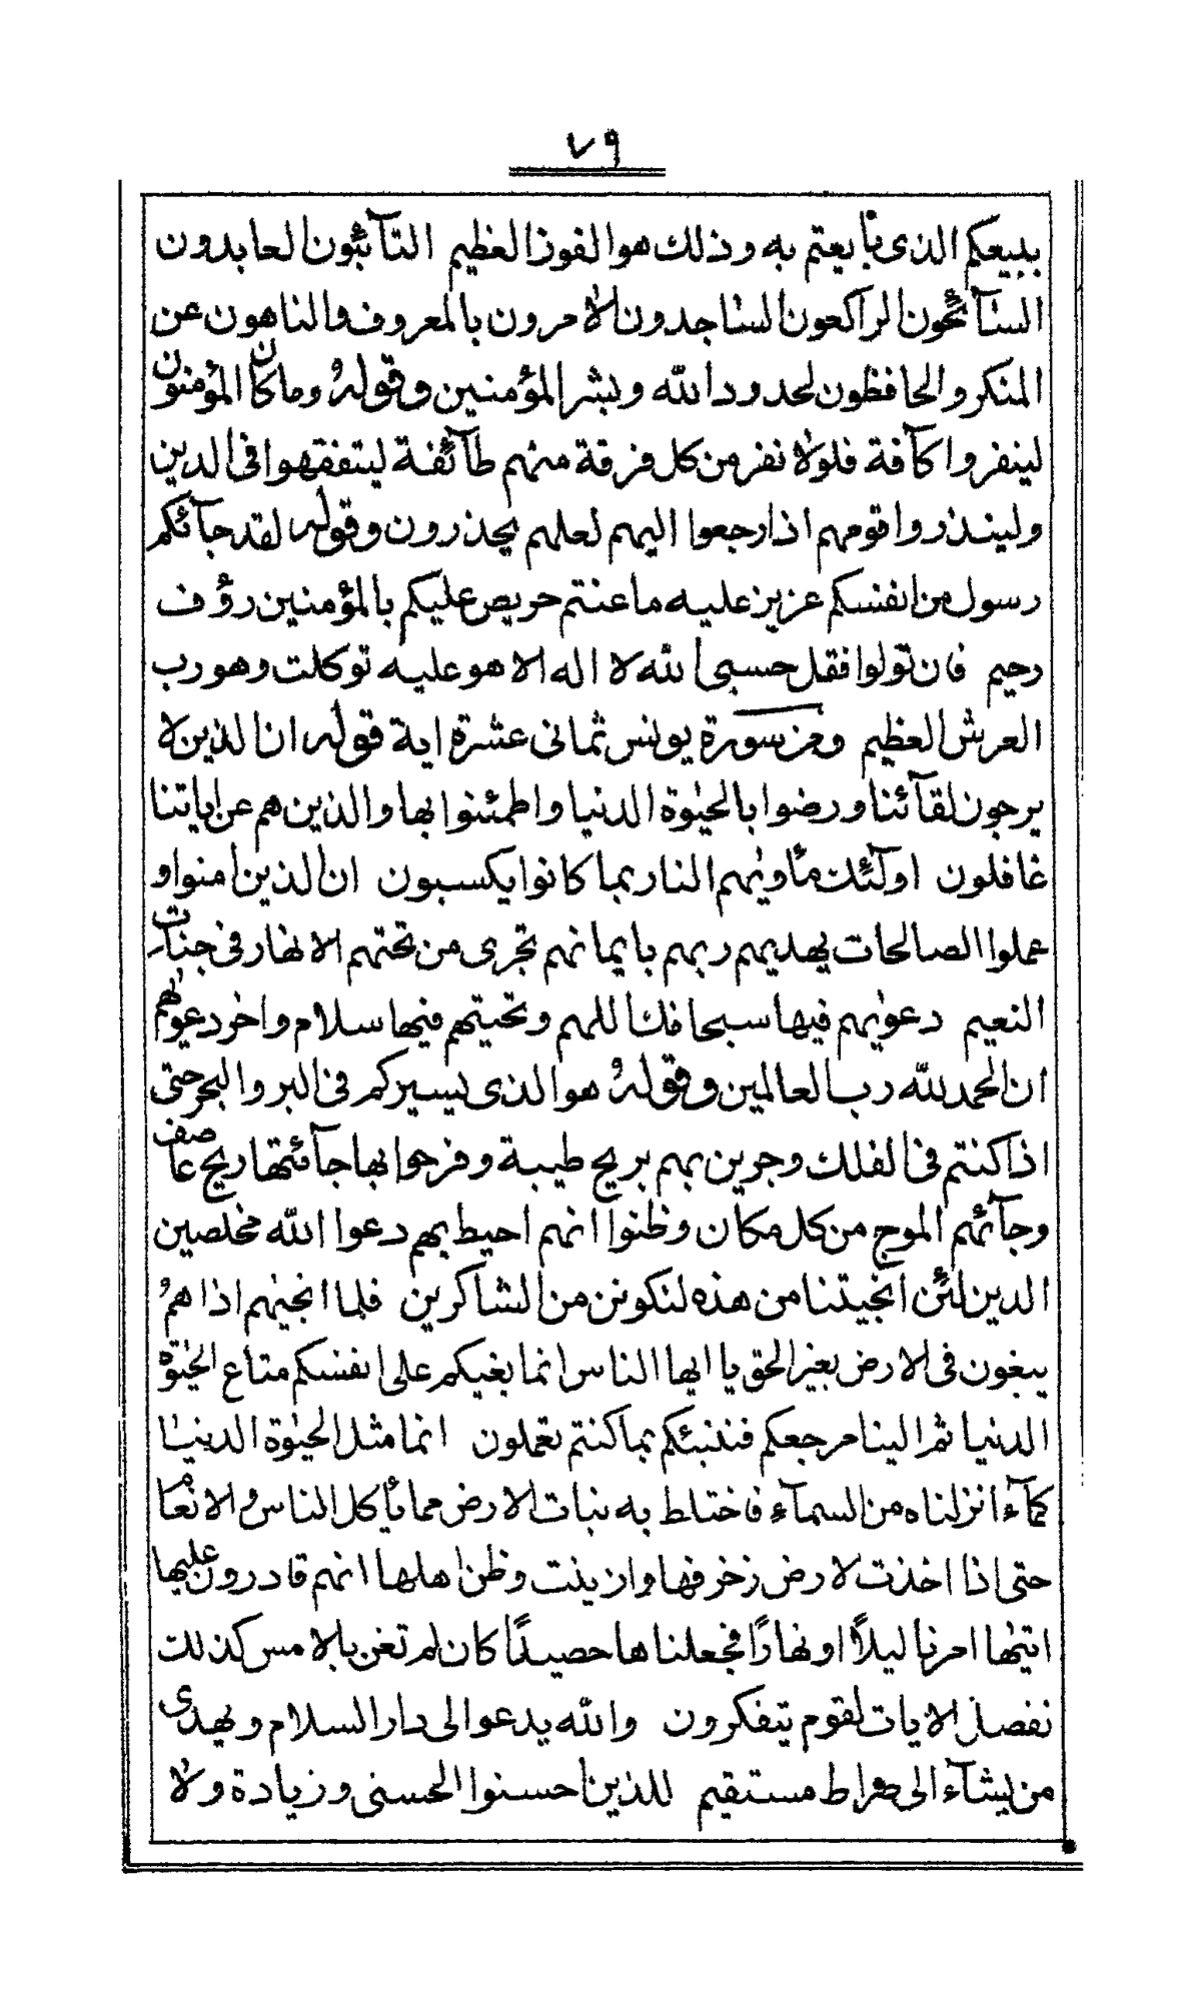 ٧٩
ببيعكم الذى بايعتم به وذلك هو الفوز العظيم التآئبون العابدون
السآئحون الراكعون الساجدون الامرون بالمعروف والناهون عن
المنكر والحافظون لحدود الله وبشر المؤمنين وقوله وما كان المؤمنون
لينفروا كآفة فلولا نفر من كل فرقة منهم طآئفة ليتفقهوا فى الدين
ولينذروا قومهم اذا رجعوا اليهم لعلهم يحذرون وقوله لقد جآئكم
رسول من انفسكم عزيز عليه ما عنتم حريص عليكم بالمؤمنين رؤف
رحيم فان تولوا فقل حسبى الله لا اله الا هو عليه توكلت وهو رب
العرش العظيم ومن سورة يونس ثمانى عشرة اية قوله ان الذين لا
يرجون لقآئنا ورضوا بالحيٰوة الدنيا واطمئنوا بها والذين هم عن اياتنا
غافلون اولٓئك مأويٰهم النار بما كانوا يكسبون ان الذين امنوا و
عملوا الصالحات يهديهم ربهم بايمانهم تجرى من تحتهم الانهار فى جنات
النعيم دعويٰهم فيها سبحانك اللهم وتحيتهم فيها سلام واخر دعويٰهم
ان الحمد لله رب العالمين وقوله هو الذى يسيركم فى البر والبحر حتى
اذا كنتم فى الفلك وجرين بهم بريح طيبة وفرحوا بها جآئتها ريح عاصف
وجآئهم الموج من كل مكان وظنوا انهم احيط بهم دعوا الله مخلصين
الدين لئن انجيتنا من هذه لنكونن من الشاكرين فلما انجيٰهم اذا همُ
يبغون فى الارض بغير الحق يا ايها الناس انما بغيكم على انفسكم متاع الحيٰوة
الدنيا ثم الينا مرجعكم فننبئكم بما كنتم تعملون انما مثل الحيٰوة الدنيا
كمآء انزلناه من السمآء فاختلط به نبات الارض مما يأكل الناس والانعام
حتى اذا اخذت الارض زخرفها وازينت وظن اهلها انهم قادرون عليها
اتيٰها امرنا ليلاً او نهارًا فجعلناها حصيدًا كان لم تغن بالامس كذلك
نفصل الايات لقوم يتفكرون والله يدعو الى دار السلام ويهدى
من يشآء الى صراط مستقيم للذين احسنوا الحسنى وزيادة ولا